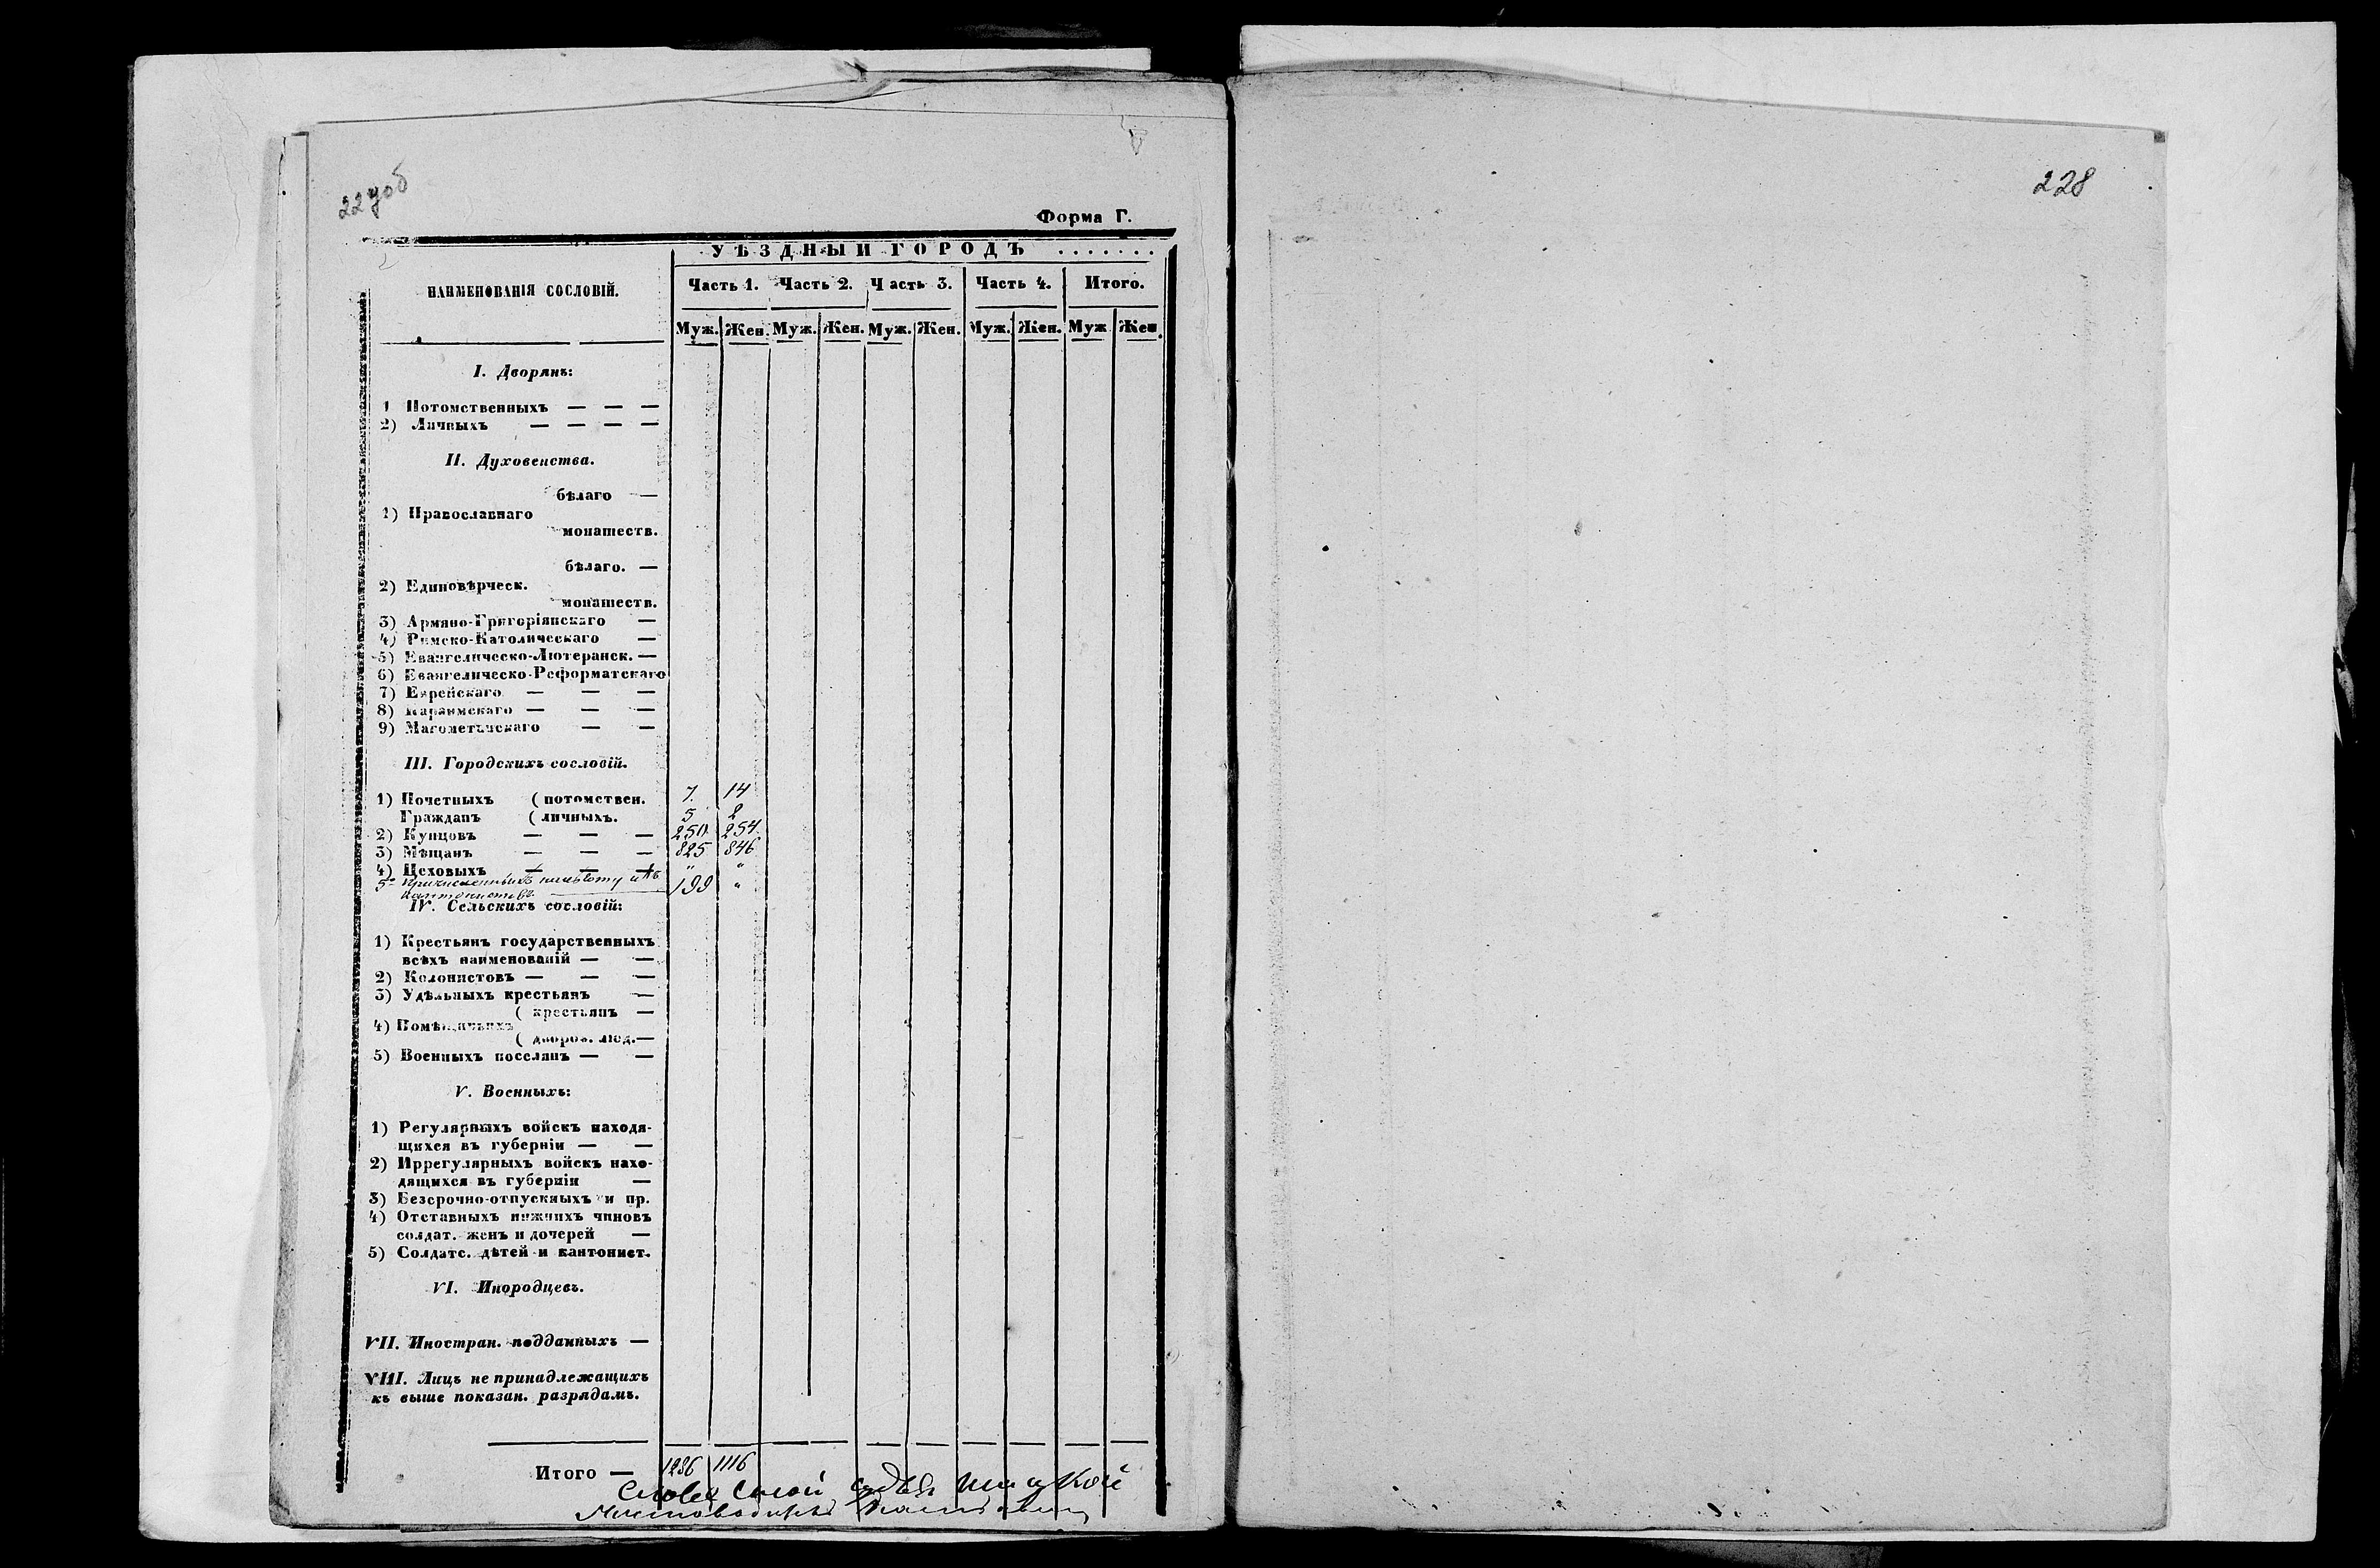 227об
Форма Г.
УѢЗДНЫЙ ГОРОДЪ . . . . . . .
НАИМЕНОВАНІЯ СОСЛОВІЙ.
Часть 1. Часть 2. Часть 3. Часть 4. Итого.
Муж. Жен. Муж. Жен. Муж. Жен. Муж. Жен. Муж Жен.
I. Дворянъ:
1 Потомственныхъ — — —
2) Личныхъ — — — —
II. Духовенства.
бѣлаго —
1) Православнаго
монашеств.
бѣлаго. —
2) Единовѣрческ.
монашеств.
3) Армяно-Григоріянскаго —
4) Римско-Католическаго —
5) Евангелическо-Лютеранск. —
6) Евангелическо-Реформатскаго
7) Еврейскаго — — —
8) Караимскаго — — —
9) Магометанскаго — —
III. Городскихъ сословій.
1) Почетныхъ ( потомствен. 7. 14
Гражданъ ( личныхъ. 5 2
2) Купцовъ — — — 250. 254.
3) Мѣщанъ — — — 825 846
4) Цеховыхъ — — — " "
5 Причисленныхъ 199 "
кантонистовъ
IV. Сельскихъ сословій:
1) Крестьянъ государственныхъ
всѣхъ наименованій — —
2) Колонистовъ — — —
3) Удѣльныхъ крестьянъ —
( крестьянъ —
4) Помѣщичьихъ
( дворов. люд. —
5) Военныхъ поселянъ — —
V. Военныхъ:
1) Регулярныхъ войскъ находя-
щихся въ губерніи — —
2) Иррегулярныхъ войскъ нахо-
дящихся въ губерніи —
3) Безсрочно-отпускныхъ и пр.
4) Отставныхъ нижнихъ чиновъ
солдат. женъ и дочерей —
5) Солдатс. дѣтей и кантонист.
VI. Инородцевъ.
VII. Иностран. подданныхъ —
VIII. Лицъ не принадлежащихъ
къ выше показан. разрядамъ.
Итого — 1286 1116
Словесной судья
228